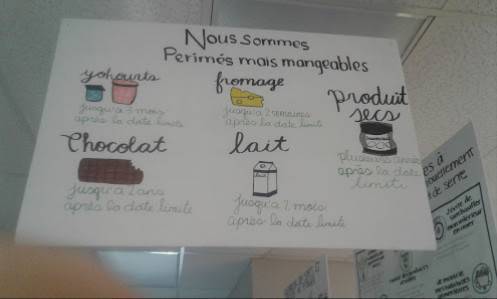 Nous sommes
Perimés mais mangeables
yohourts
jusqu'a 3 mois
après la date limite
fromage
jusqu'a 2 semaines
après la date limite
produit
secs
plusieurs année
après la date
limite
Chocolat
jusqu'a 2 ans
après la date limite
lait
jusqu'a 2 mois
après la date limite
es à
de serre